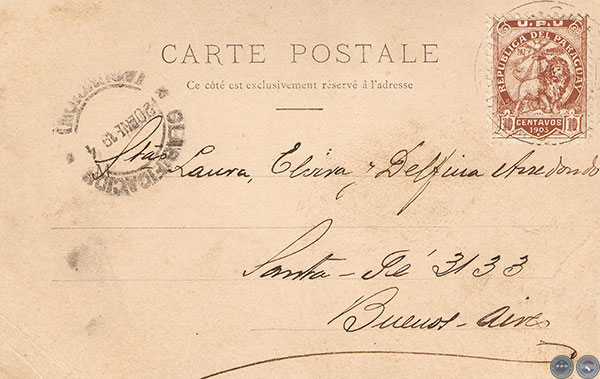 U.P.U
REPUBLICA DEL PARAGUAY
10 CENTAVOS 10
1903
CARTE POSTALE
Ce côté est exclusivement réservé à l'adresse
CLASIFICACION
20 ENE 19 4
Stas Laura, Elvira y Delfina Arredondo
Santa-Fé 3133
Buenos-Aires